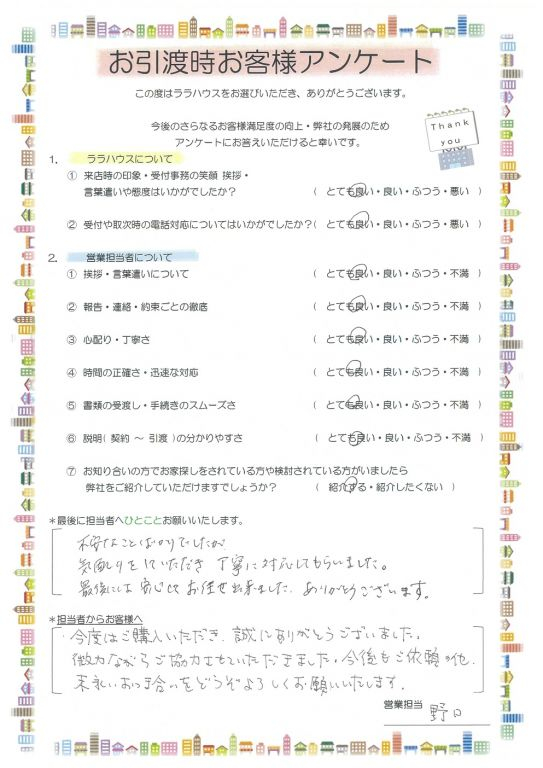 お引渡時お客様アンケート
この度はララハウスをお選びいただき、ありがとうございます。
今後のさらなるお客様満足度の向上・弊社の発展のため
アンケートにお答えいただけると幸いです。
Thank
you
1. ララハウスについて
① 来店時の印象・受付事務の笑顔 挨拶・
言葉遣いや態度はいかがでしたか？ （ とても良い・良い・ふつう・悪い ）
② 受付や取次時の電話対応についてはいかがでしたか？（ とても良い・良い・ふつう・悪い ）
2. 営業担当者について
① 挨拶・言葉遣いについて （ とても良い・良い・ふつう・不満 ）
② 報告・連絡・約束ごとの徹底 （ とても良い・良い・ふつう・不満 ）
③ 心配り・丁寧さ （ とても良い・良い・ふつう・不満 ）
④ 時間の正確さ・迅速な対応 （ とても良い・良い・ふつう・不満 ）
⑤ 書類の受渡し・手続きのスムーズさ （ とても良い・良い・ふつう・不満 ）
⑥ 説明（契約 ～ 引渡）の分かりやすさ （ とても良い・良い・ふつう・不満 ）
⑦ お知り合いの方でお家探しをされている方や検討されている方がいましたら
弊社をご紹介していただけますでしょうか？ （ 紹介する・紹介したくない ）
＊最後に担当者へひとことお願いいたします。
不安なことばかりでしたが
気配りをしていただき 丁寧に対応してもらいました。
最後には安心してお任せ出来ました。ありがとうございます。
＊担当者からお客様へ
今度はご購入いただき、誠にありがとうございました。
微力ながらご協力させていただきました。今後もご依頼の他、
末永いお付き合いをどうぞよろしくお願いいたします。
営業担当 野口